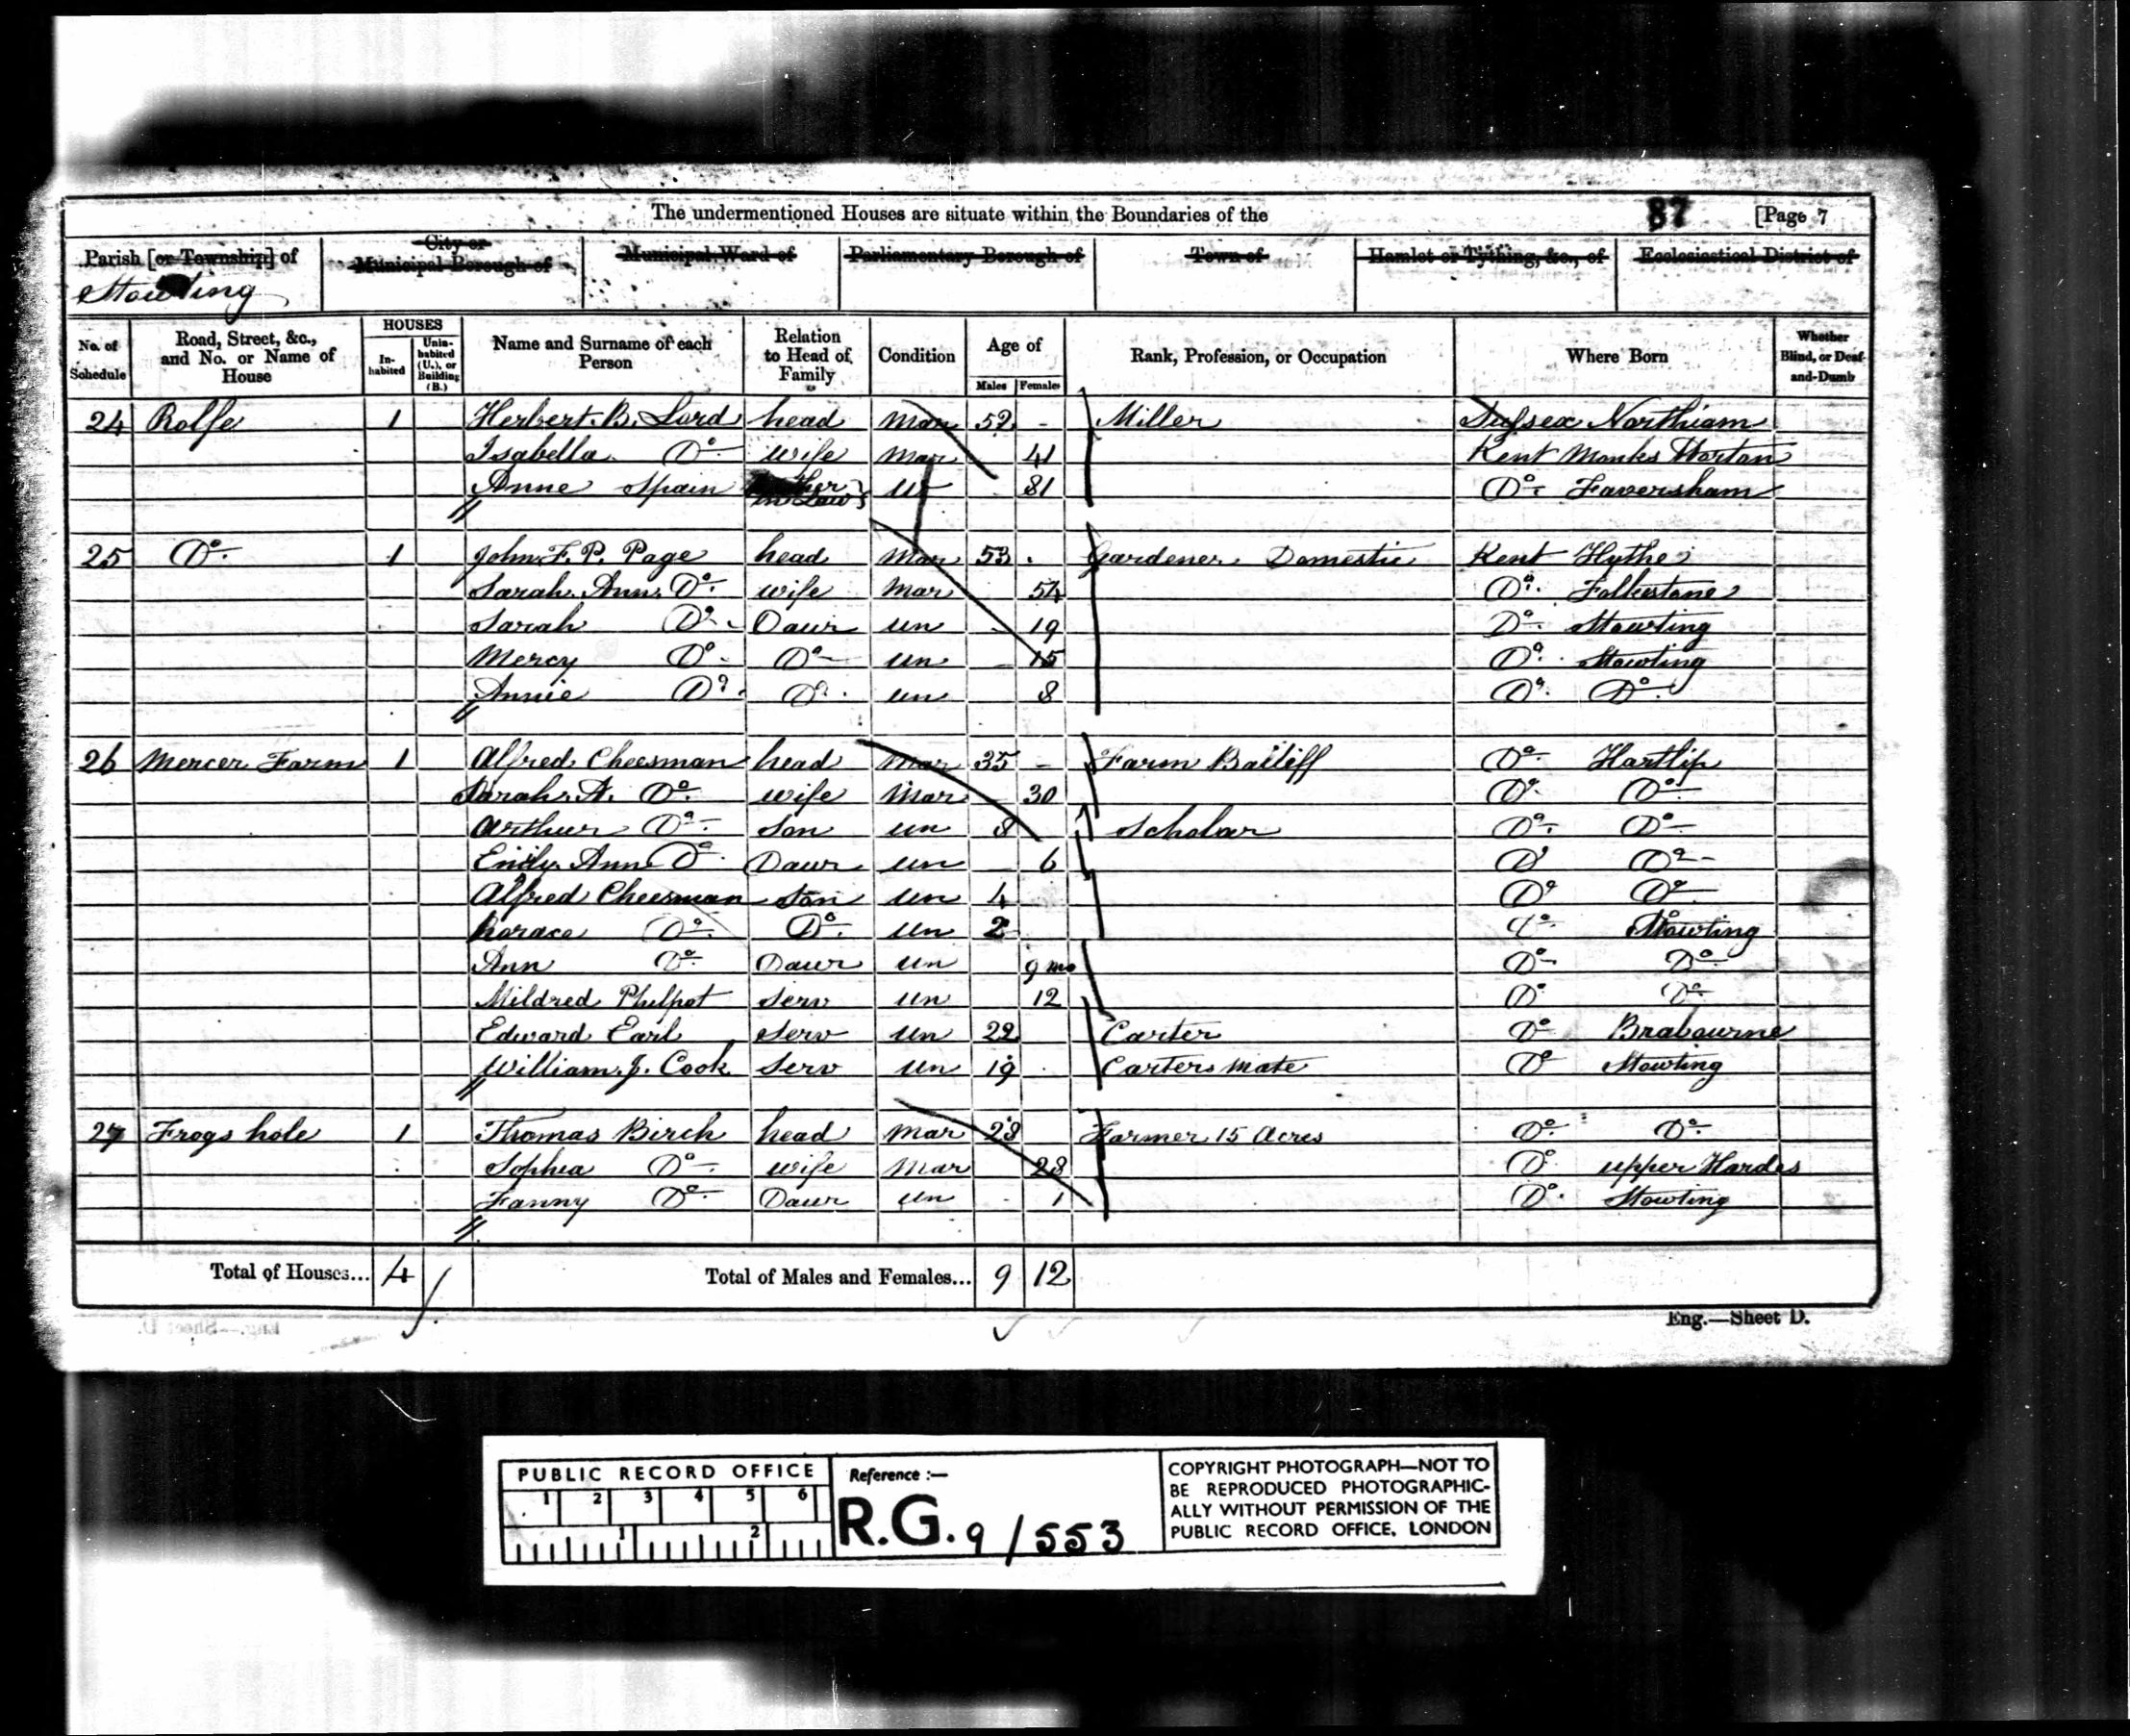 The undermentioned Houses are situate within the Boundaries of the 87 [Page 7
Parish [or Township] of City or Municipal Borough of Municipal Ward of Parliamentary Borough of Town of Hamlet or Tything, &c., of Ecclesiastical District of
Stowting
No. of Schedule Road, Street, &c., and No. or Name of House HOUSES In-habited Unin-habited (U.), or Building (B.) Name and Surname of each Person Relation to Head of Family Condition Age of Males Females Rank, Profession, or Occupation Where Born Whether Blind, or Deaf-and-Dumb
24 Rolfe 1 Herbert B. Lord head Mar 52 - Miller Sussex Northiam
Isabella Do wife Mar 41 Kent Monks Horton
Anne Spain in Law un 81 Do Faversham
25 Do 1 John F. P. Page head Mar 53 Gardener Domestic Kent Hythe
Sarah Ann Do wife Mar 54 Do Folkestone
Sarah Do Daur un 19 Do Stowting
Mercy Do Do un 15 Do Stowting
Annie Do Do un 8 Do Do
26 Mercer Farm 1 Alfred Cheesman head Mar 35 - Farm Bailiff Do Hartlip
Sarah A. Do wife Mar 30 Do Do
Arthur Do Son un 8 Scholar Do Do
Emily Ann Do Daur un 6 Do Do
Alfred Cheesman Son un 4 Do Do
horace Do Do un 2 Do Stowting
Ann Do Daur un 9 mo Do Do
Mildred Philpot Serv un 12 Do Do
Edward Earl Serv un 22 Carter Do Brabourne
William J. Cook Serv un 19 Carters Mate Do Stowting
27 Frogs hole 1 Thomas Birch head Mar 28 Farmer 15 Acres Do Do
Sophia Do wife Mar 28 Do upper Hardes
Fanny Do Daur un 1 Do Stowting
Total of Houses... 4 Total of Males and Females... 9 12
Eng.—Sheet D.
PUBLIC RECORD OFFICE
1 2 3 4 5 6
1 2
Reference :—
R.G. 9/553
COPYRIGHT PHOTOGRAPH—NOT TO
BE REPRODUCED PHOTOGRAPHIC-
ALLY WITHOUT PERMISSION OF THE
PUBLIC RECORD OFFICE, LONDON